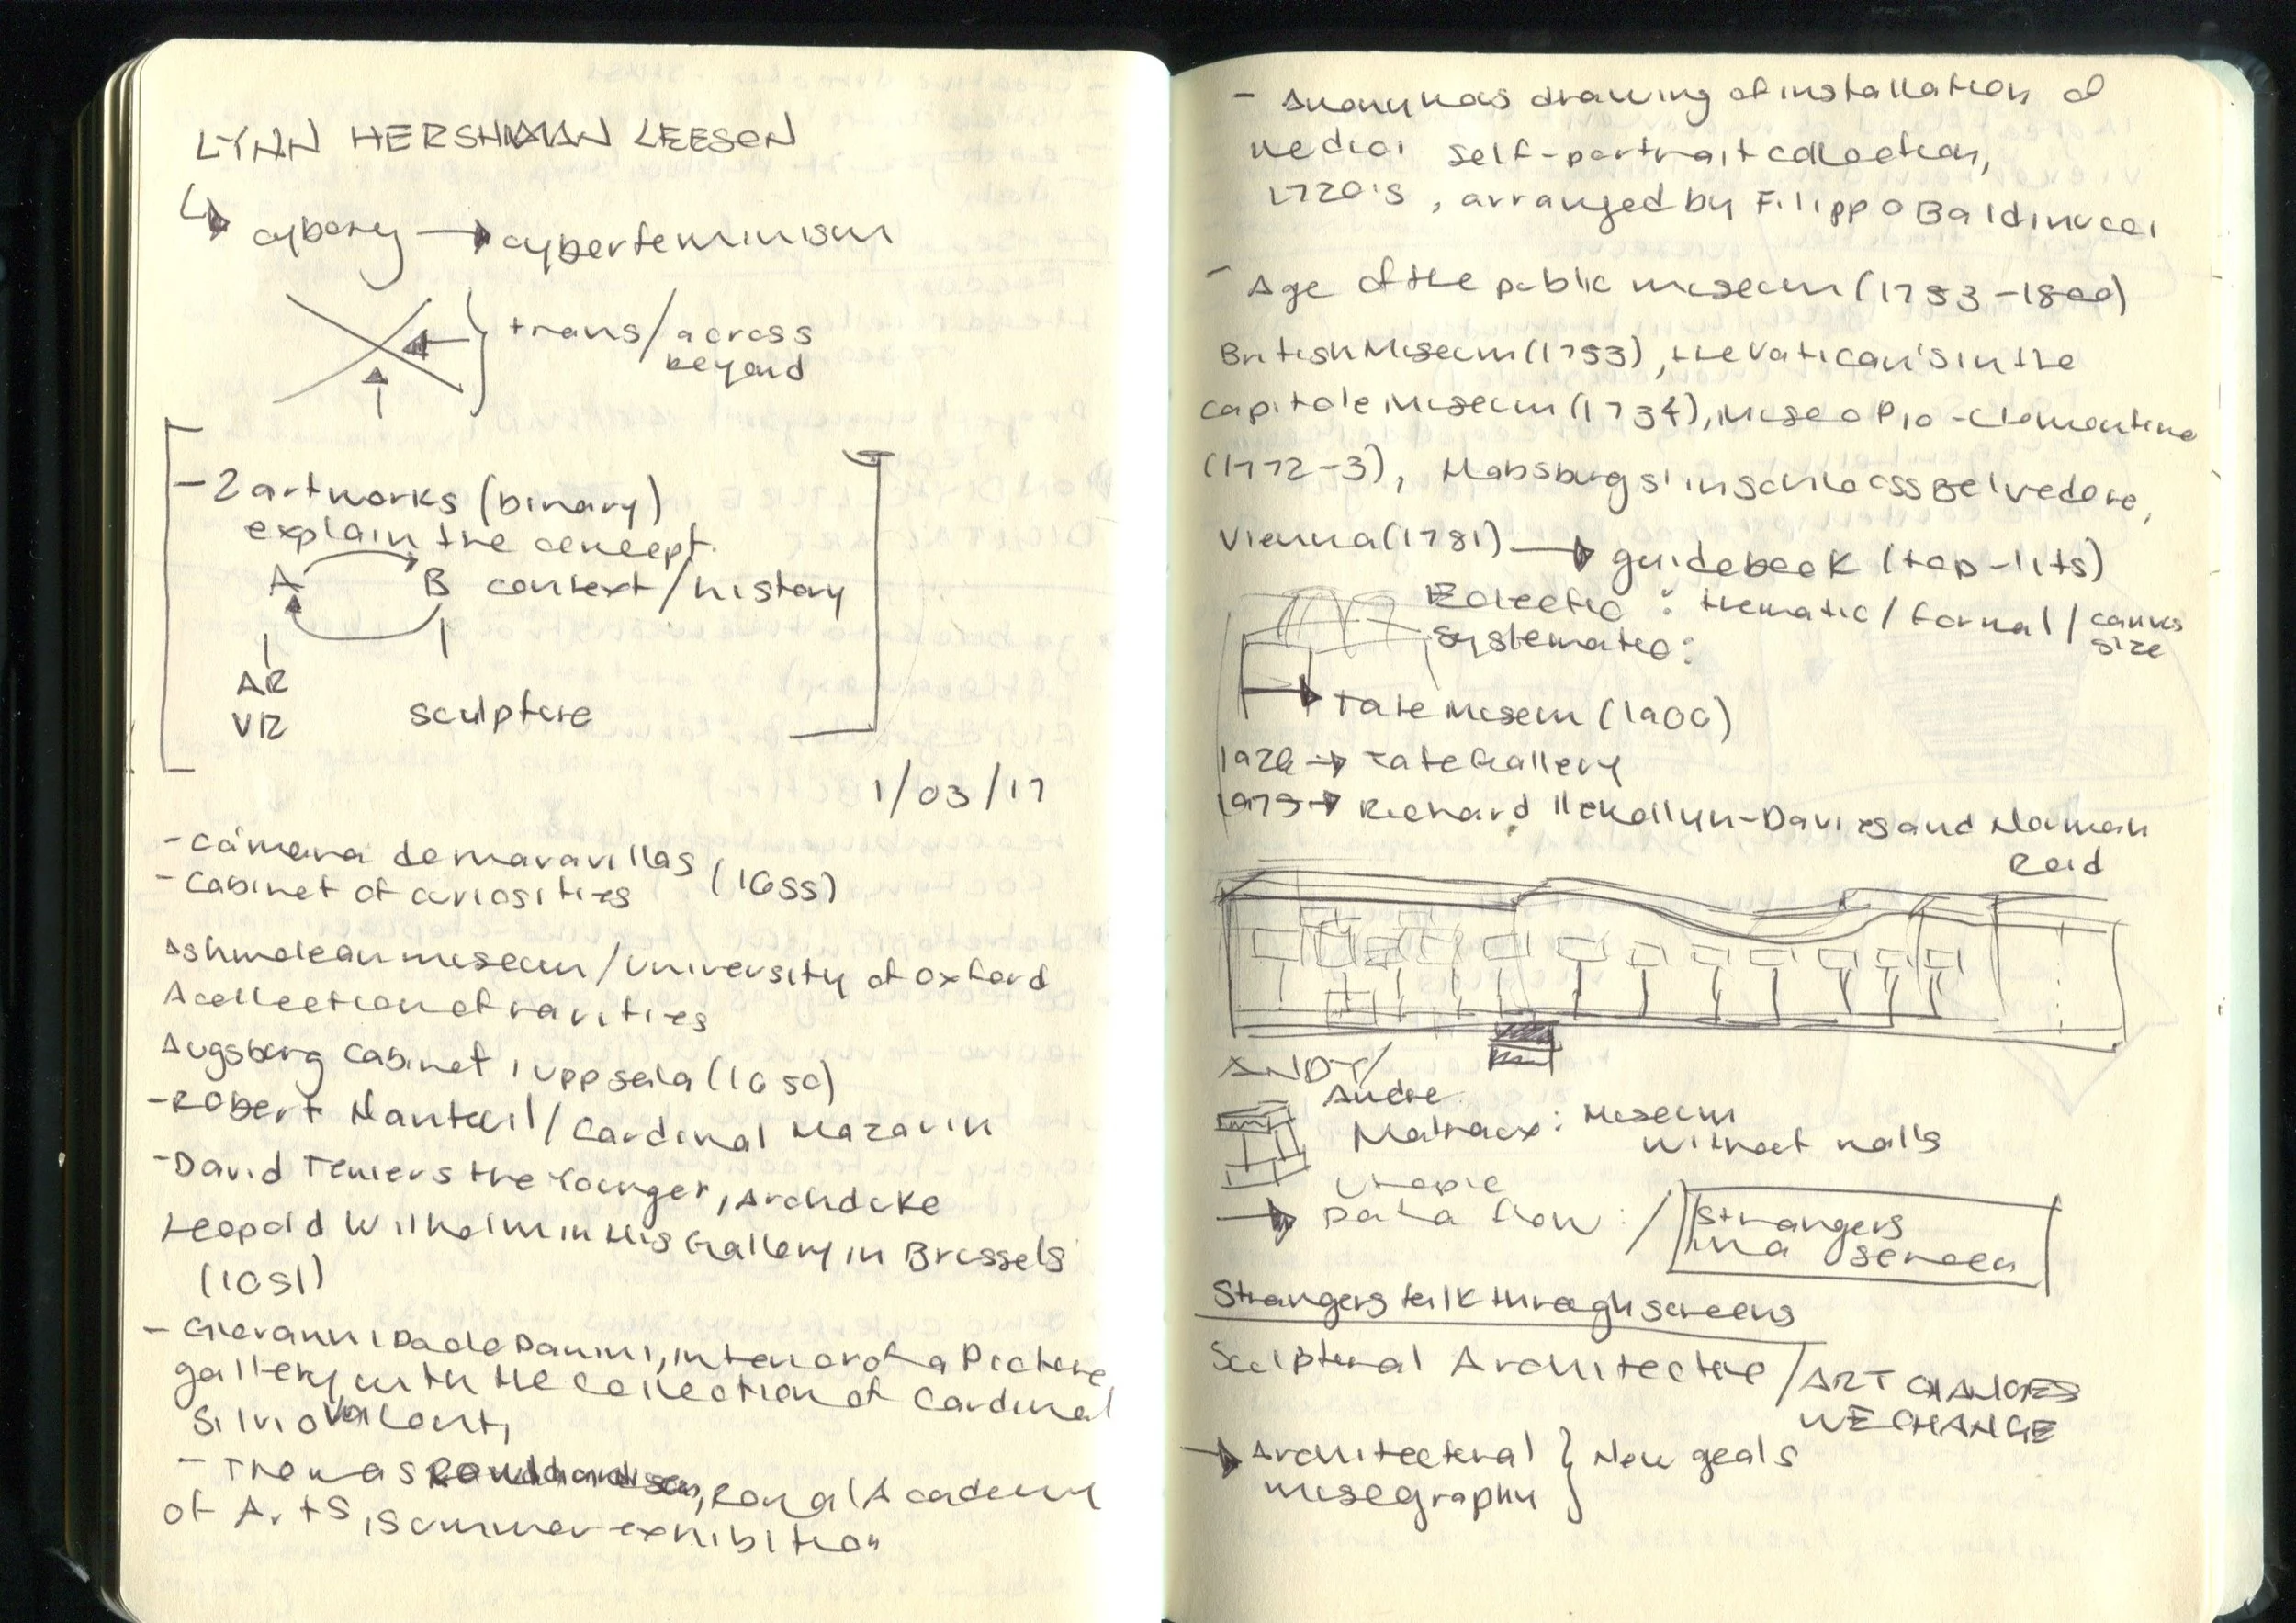 LYNN HERSHMAN LEESON
cyborg → cyberfeminism
trans/across
beyond
- 2 artworks (binary)
explain the concept.
A B context/history
AR
VR sculpture
1/03/17
- cámara de maravillas
- Cabinet of curiosities (1655)
Ashmolean museum/University of Oxford
A collection of rarities
Augsburg Cabinet, Uppsala (1630)
- Robert Nanteuil/Cardinal Mazarin
- David Teniers the Younger, Archduke
Leopold Wilhelm in His Gallery in Brussels
(1651)
- Giovanni Paolo Panini, interior of a Picture
gallery with the collection of Cardinal
Silvio Valenti
- Thomas Rowlandson, Royal Academy
of Arts, summer exhibition
- Anonymous drawing of installation of
Medici self-portrait collection,
1720's, arranged by Filippo Baldinucci
- Age of the public museum (1753-1800)
British Museum (1753), the Vatican's in the
Capitole Museum (1734), Museo Pio-Clementino
(1772-3), Habsburgs' in Schloss Belvedere,
Vienna (1781) → guidebook (top-lits)
Eclectic: thematic/formal/canvas
size
systematic:
→ Tate Museum (1906)
1926 → Tate Gallery
1979 → Richard Llewellyn-Davies and Norman
Reid
ANDY/
Andre
Malraux: Museum
without walls
Utopie
→ Data flow: / Strangers
in a screen
Strangers talk through screens
Sculptural Architecture/ART CHANGES
WE CHANGE
→ Architectural } New goals
museography